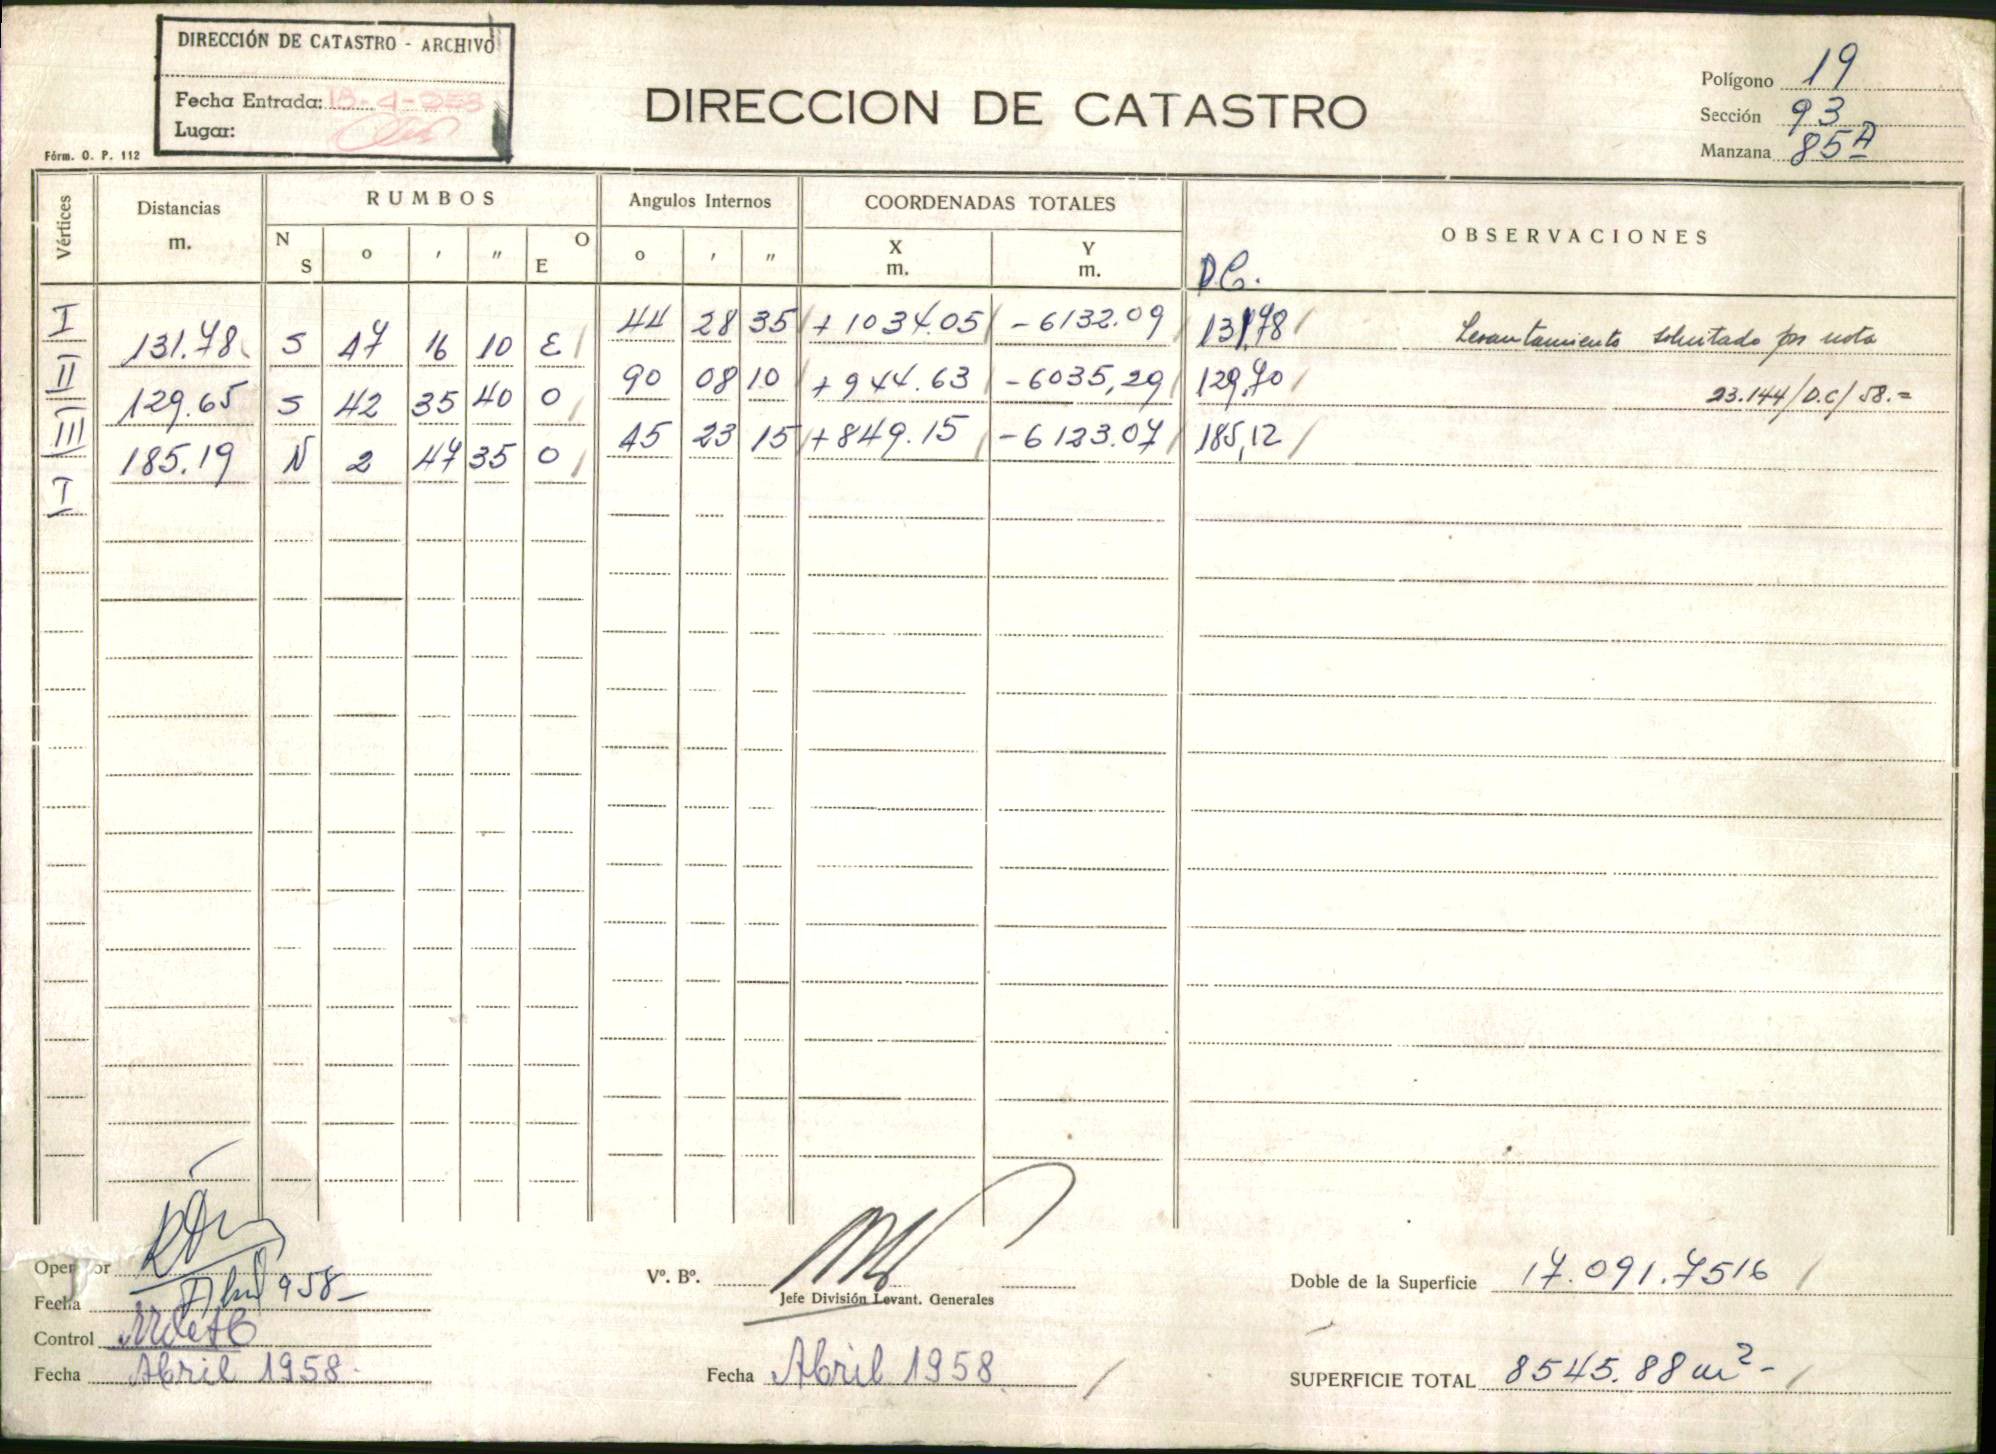 DIRECCIÓN DE CATASTRO - ARCHIVO
Fecha Entrada: 18-4-958
Lugar:
Fórm. O. P. 112
DIRECCION DE CATASTRO
Polígono 19
Sección 93
Manzana 85A
Vértices Distancias m. RUMBOS Angulos Internos COORDENADAS TOTALES OBSERVACIONES
N S o ' " O E o ' " X m. Y m. D.C.
I 44 28 35 +1034.05 -6132.09 131,78 Levantamiento solicitado por nota
131.78 S 47 16 10 E
II 90 08 10 +944.63 -6035,29 129,70 23.144/D.C/58.=
129.65 S 42 35 40 O
III 45 23 15 +849.15 -6123.07 185,12
185.19 N 2 47 35 O
I
Operador
Fecha Abril 958-
Control
Fecha Abril 1958.
Vº. Bº.
Jefe División Levant. Generales
Fecha Abril 1958
Doble de la Superficie 17.091.7516
SUPERFICIE TOTAL 8545.88 m²-